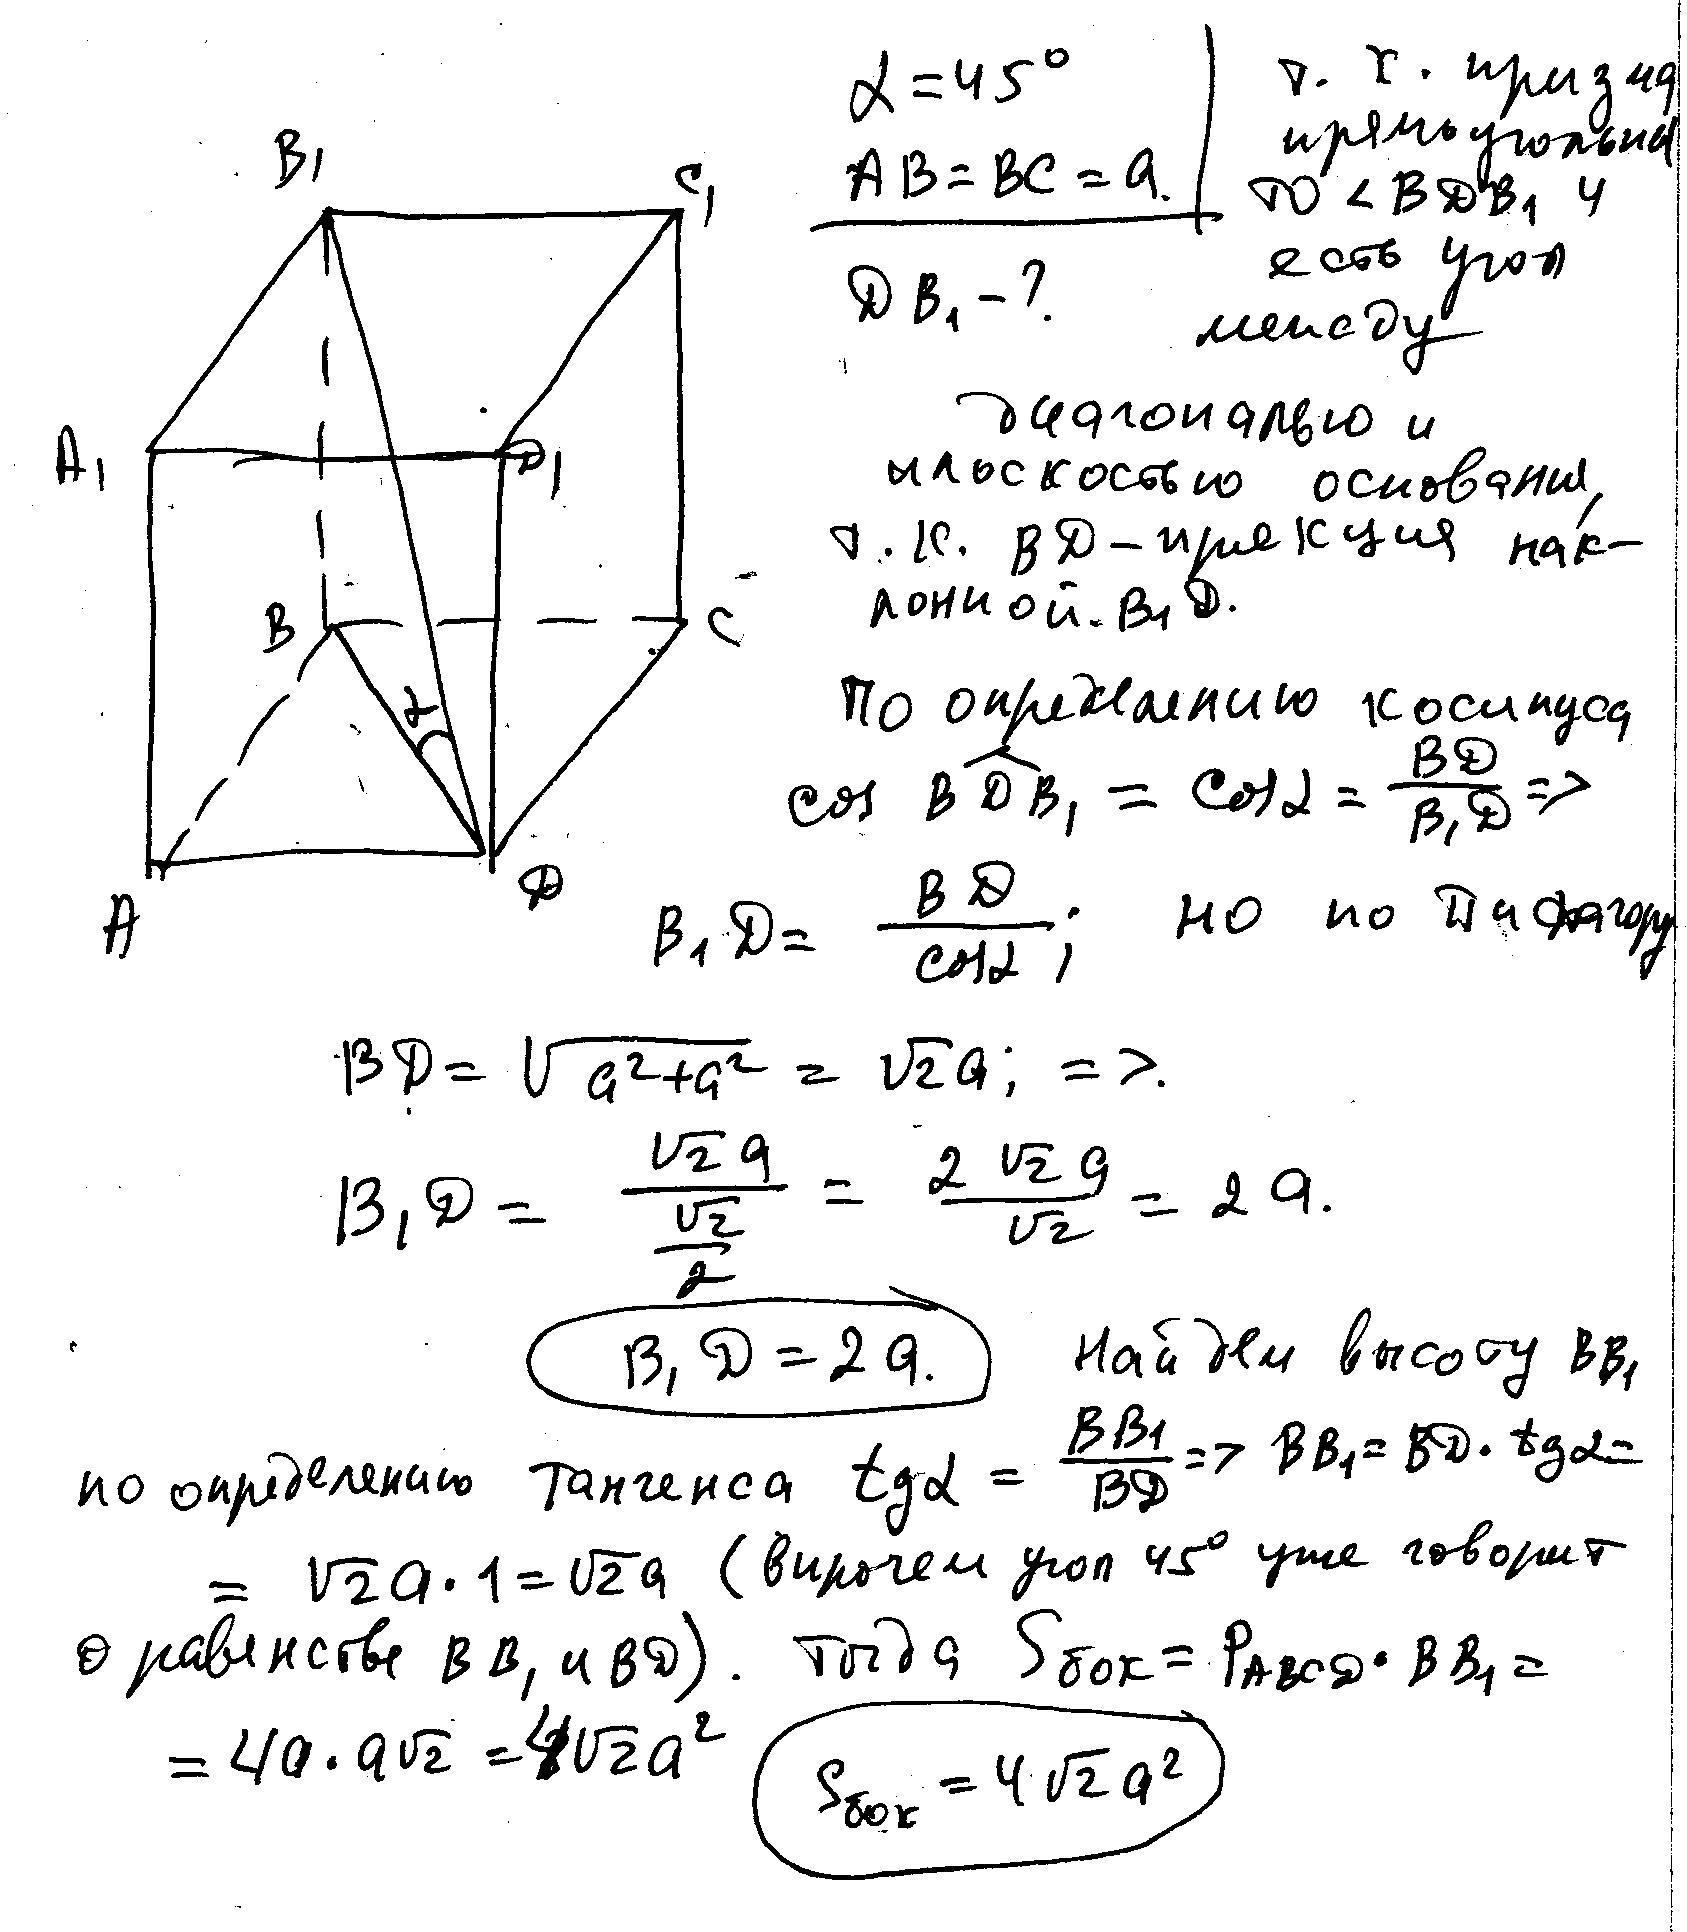 B₁
C₁
A₁
D₁
B
C
α
A
D
α = 45°
AB = BC = a.
DB₁ - ?
т. к. призма
прямоугольная
то < BDB₁ и
есть угол
между
диагональю и
плоскостью основания,
т.к. BD - проекция нак-
лонной B₁D.
По определению косинуса
cos BDB₁ = cosα = BD / B₁D =>
B₁D = BD / cosα ; но по Пифагору
BD = √(a² + a²) = √2a; =>.
B₁D = √2a / (√2 / 2) = 2√2a / √2 = 2a.
B₁D = 2a. Найдем высоту BB₁
по определению тангенса tgα = BB₁ / BD => BB₁ = BD · tgα =
= √2a · 1 = √2a (впрочем угол 45° уже говорит
о равенстве BB₁ и BD). Тогда Sбок = PABCD · BB₁ =
= 4a · a√2 = 4√2a²
Sбок = 4√2a²